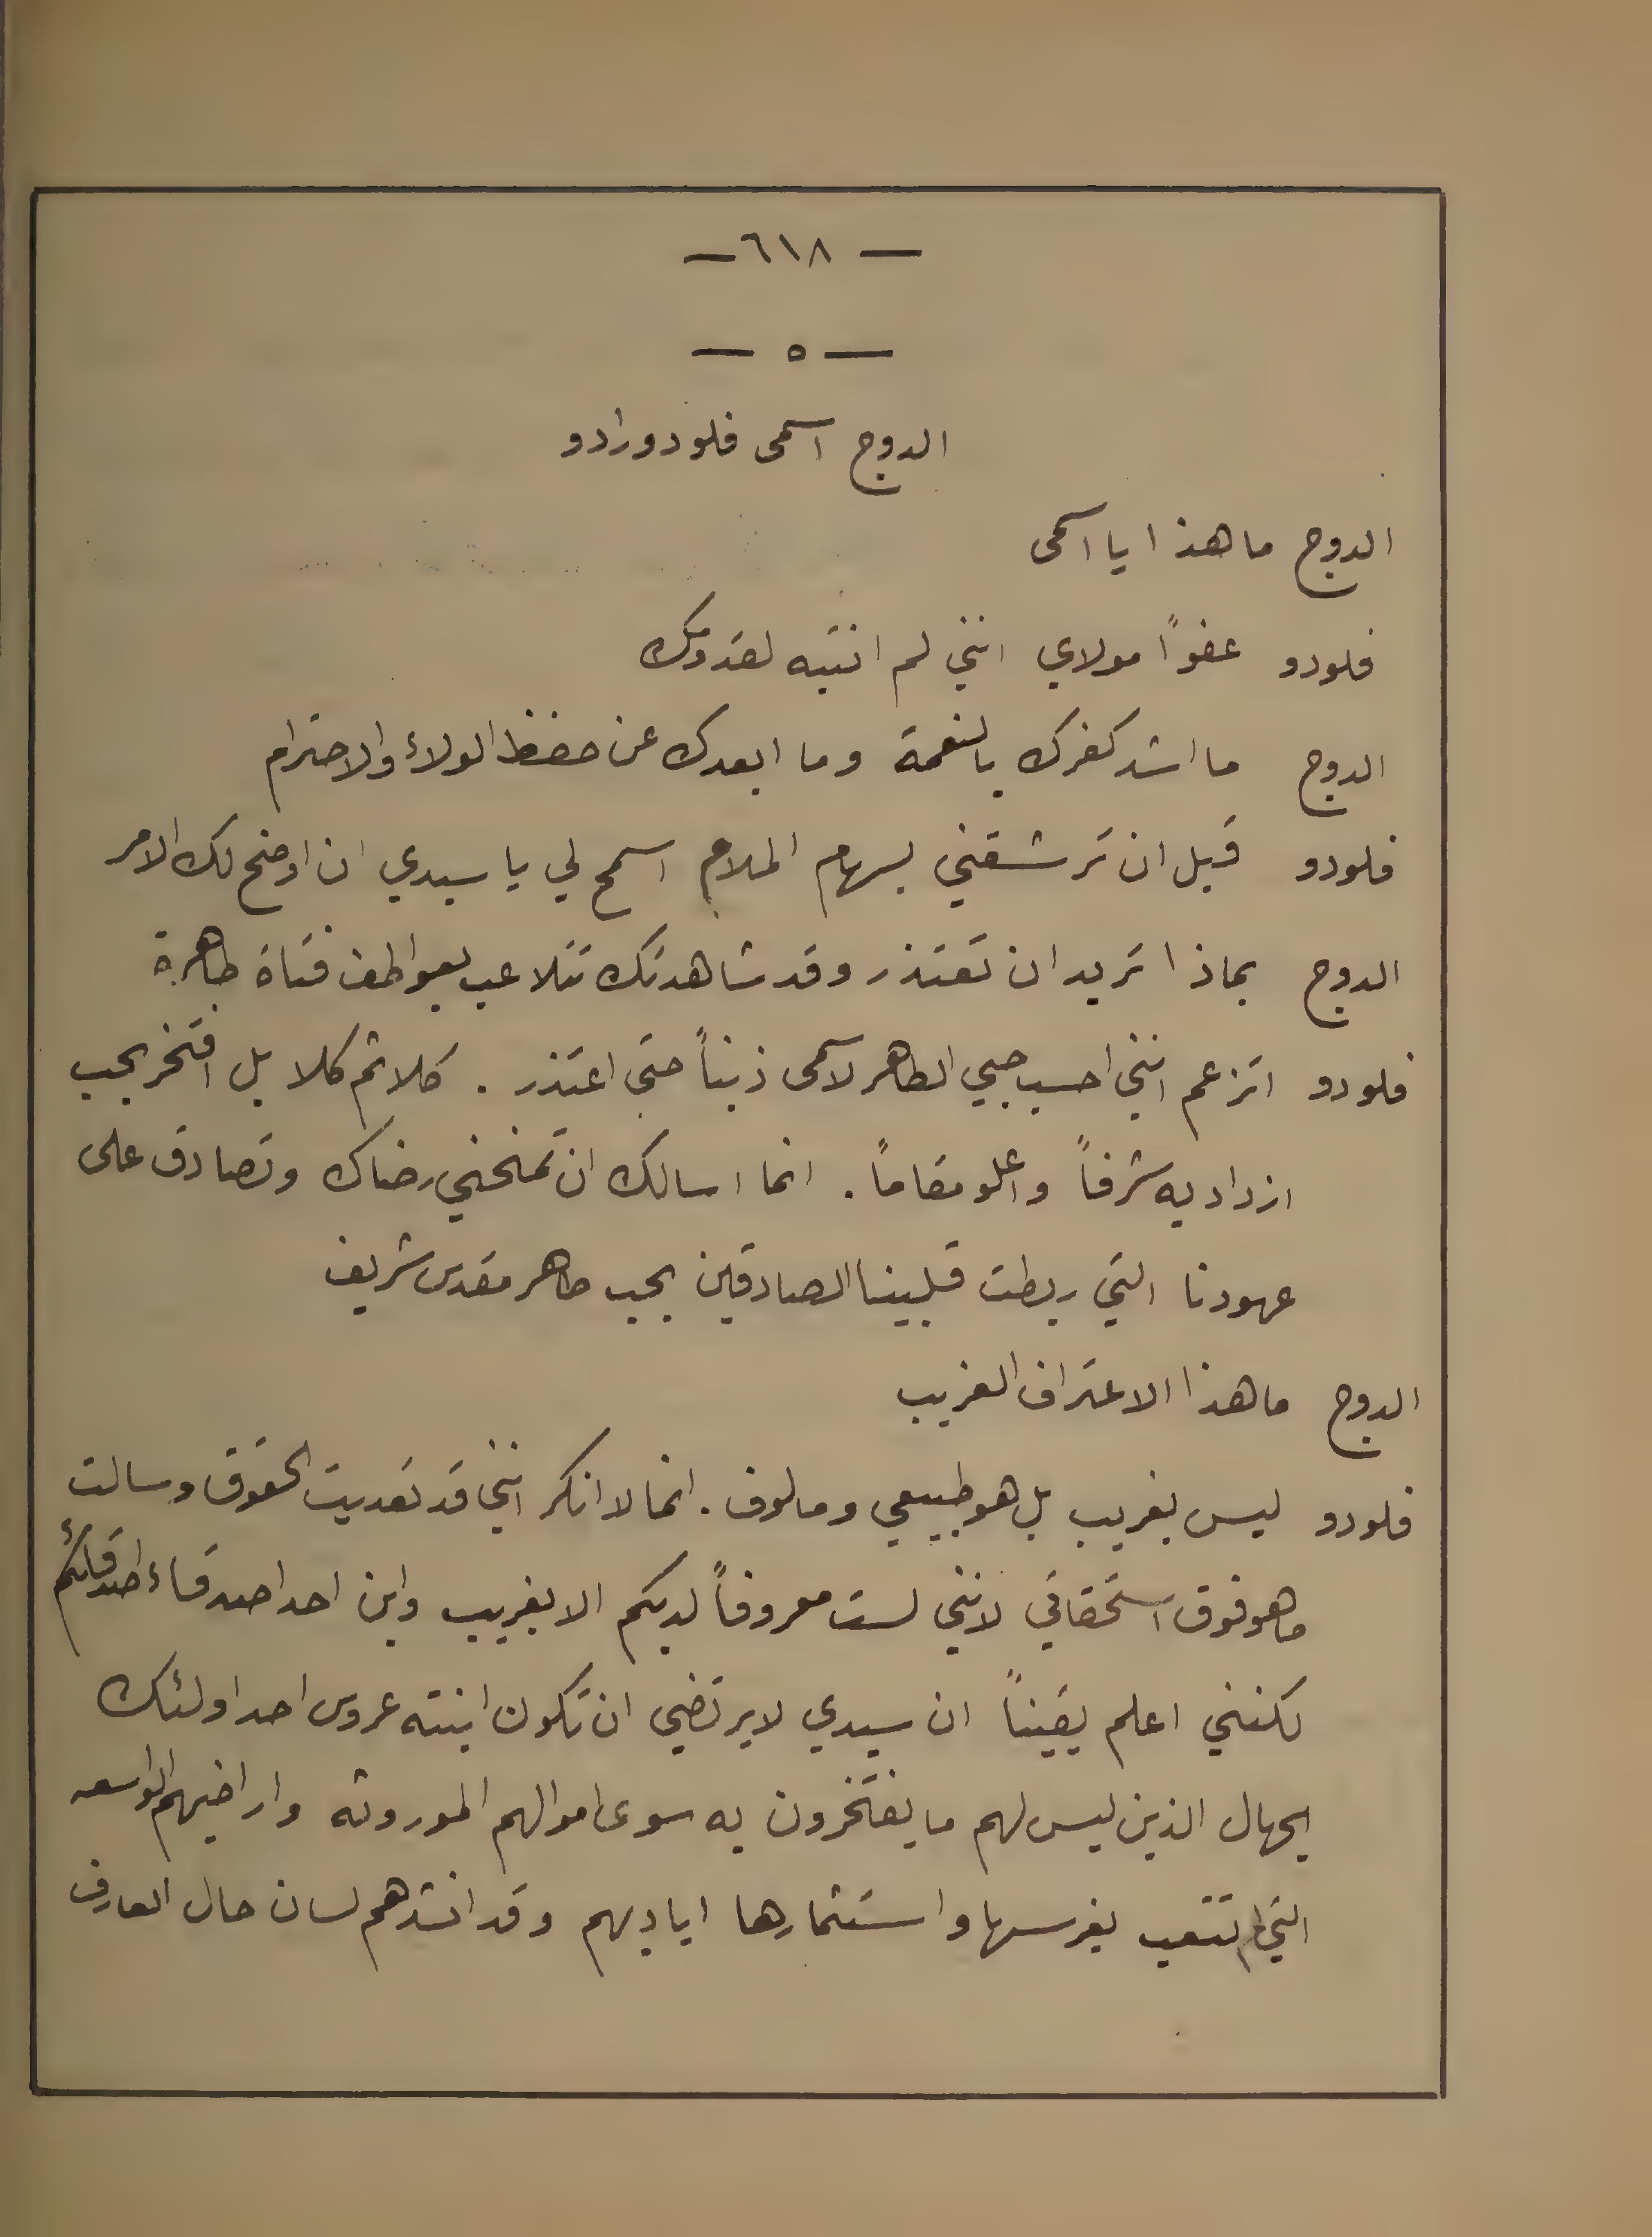 — ٦١٨ —
— ٥ —
الدوج اسمى فلودورادو
الدوج ما هذا يا اسمى
فلودو عفواً مولاي انني لم انتبه لقدومك
الدوج ما اشد كفرك بالنعمة وما ابعدك عن حفظ الولاء والاحترام
فلودو قبل ان ترشقني بسهام الملام اسمح لي يا سيدي ان اوضح لك الامر
الدوج بماذا تريد ان تعتذر وقد شاهدتك تتلاعب بعواطف فتاة طاهرة
فلودو اتزعم انني احسب حبي الطاهر لاسمى ذنباً حتى اعتذر . كلا ثم كلا بل افتخر بحب
ازداد به شرفاً واعلو مقاماً . انما اسالك ان تمنحني رضاك وتصادق على
عهودنا التي ربطت قلبينا الصادقين بحب طاهر مقدس شريف
الدوج ما هذا الاعتراف الغريب
فلودو ليس بغريب بل هو طبيعي ومالوف . انما لا انكر انني قد تعديت الحقوق وسالت
ما هو فوق استحقاقي لانني لست معروفاً لديكم الا بغريب وابن احد اصدقاء اصدقائكم
لكنني اعلم يقيناً ان سيدي لا يرتضي ان تكون ابنته عروس احد اولئك
الجهال الذين ليس لهم ما يفتخرون به سوى اموالهم الموروثه واراضيهم الواسعه
التي لم تتعب بغرسها واستثمارها اياديهم وقد انشدهم لسان حال العارف